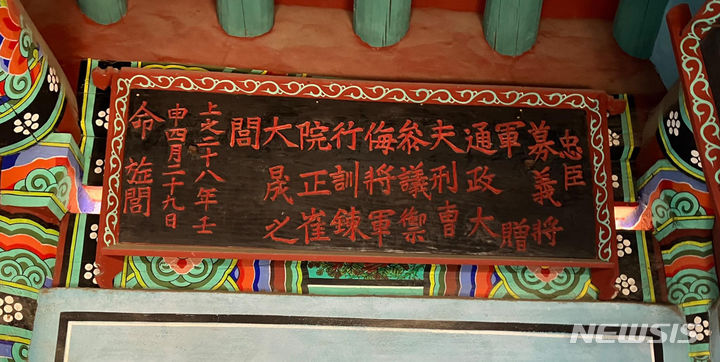 忠臣
募義將
軍贈
通政大
夫刑曹
叅議禦
侮將軍
行訓鍊
院正崔
大晟之
閭
上之二十八年壬
申四月二十九日
命旌閭
NEWSIS